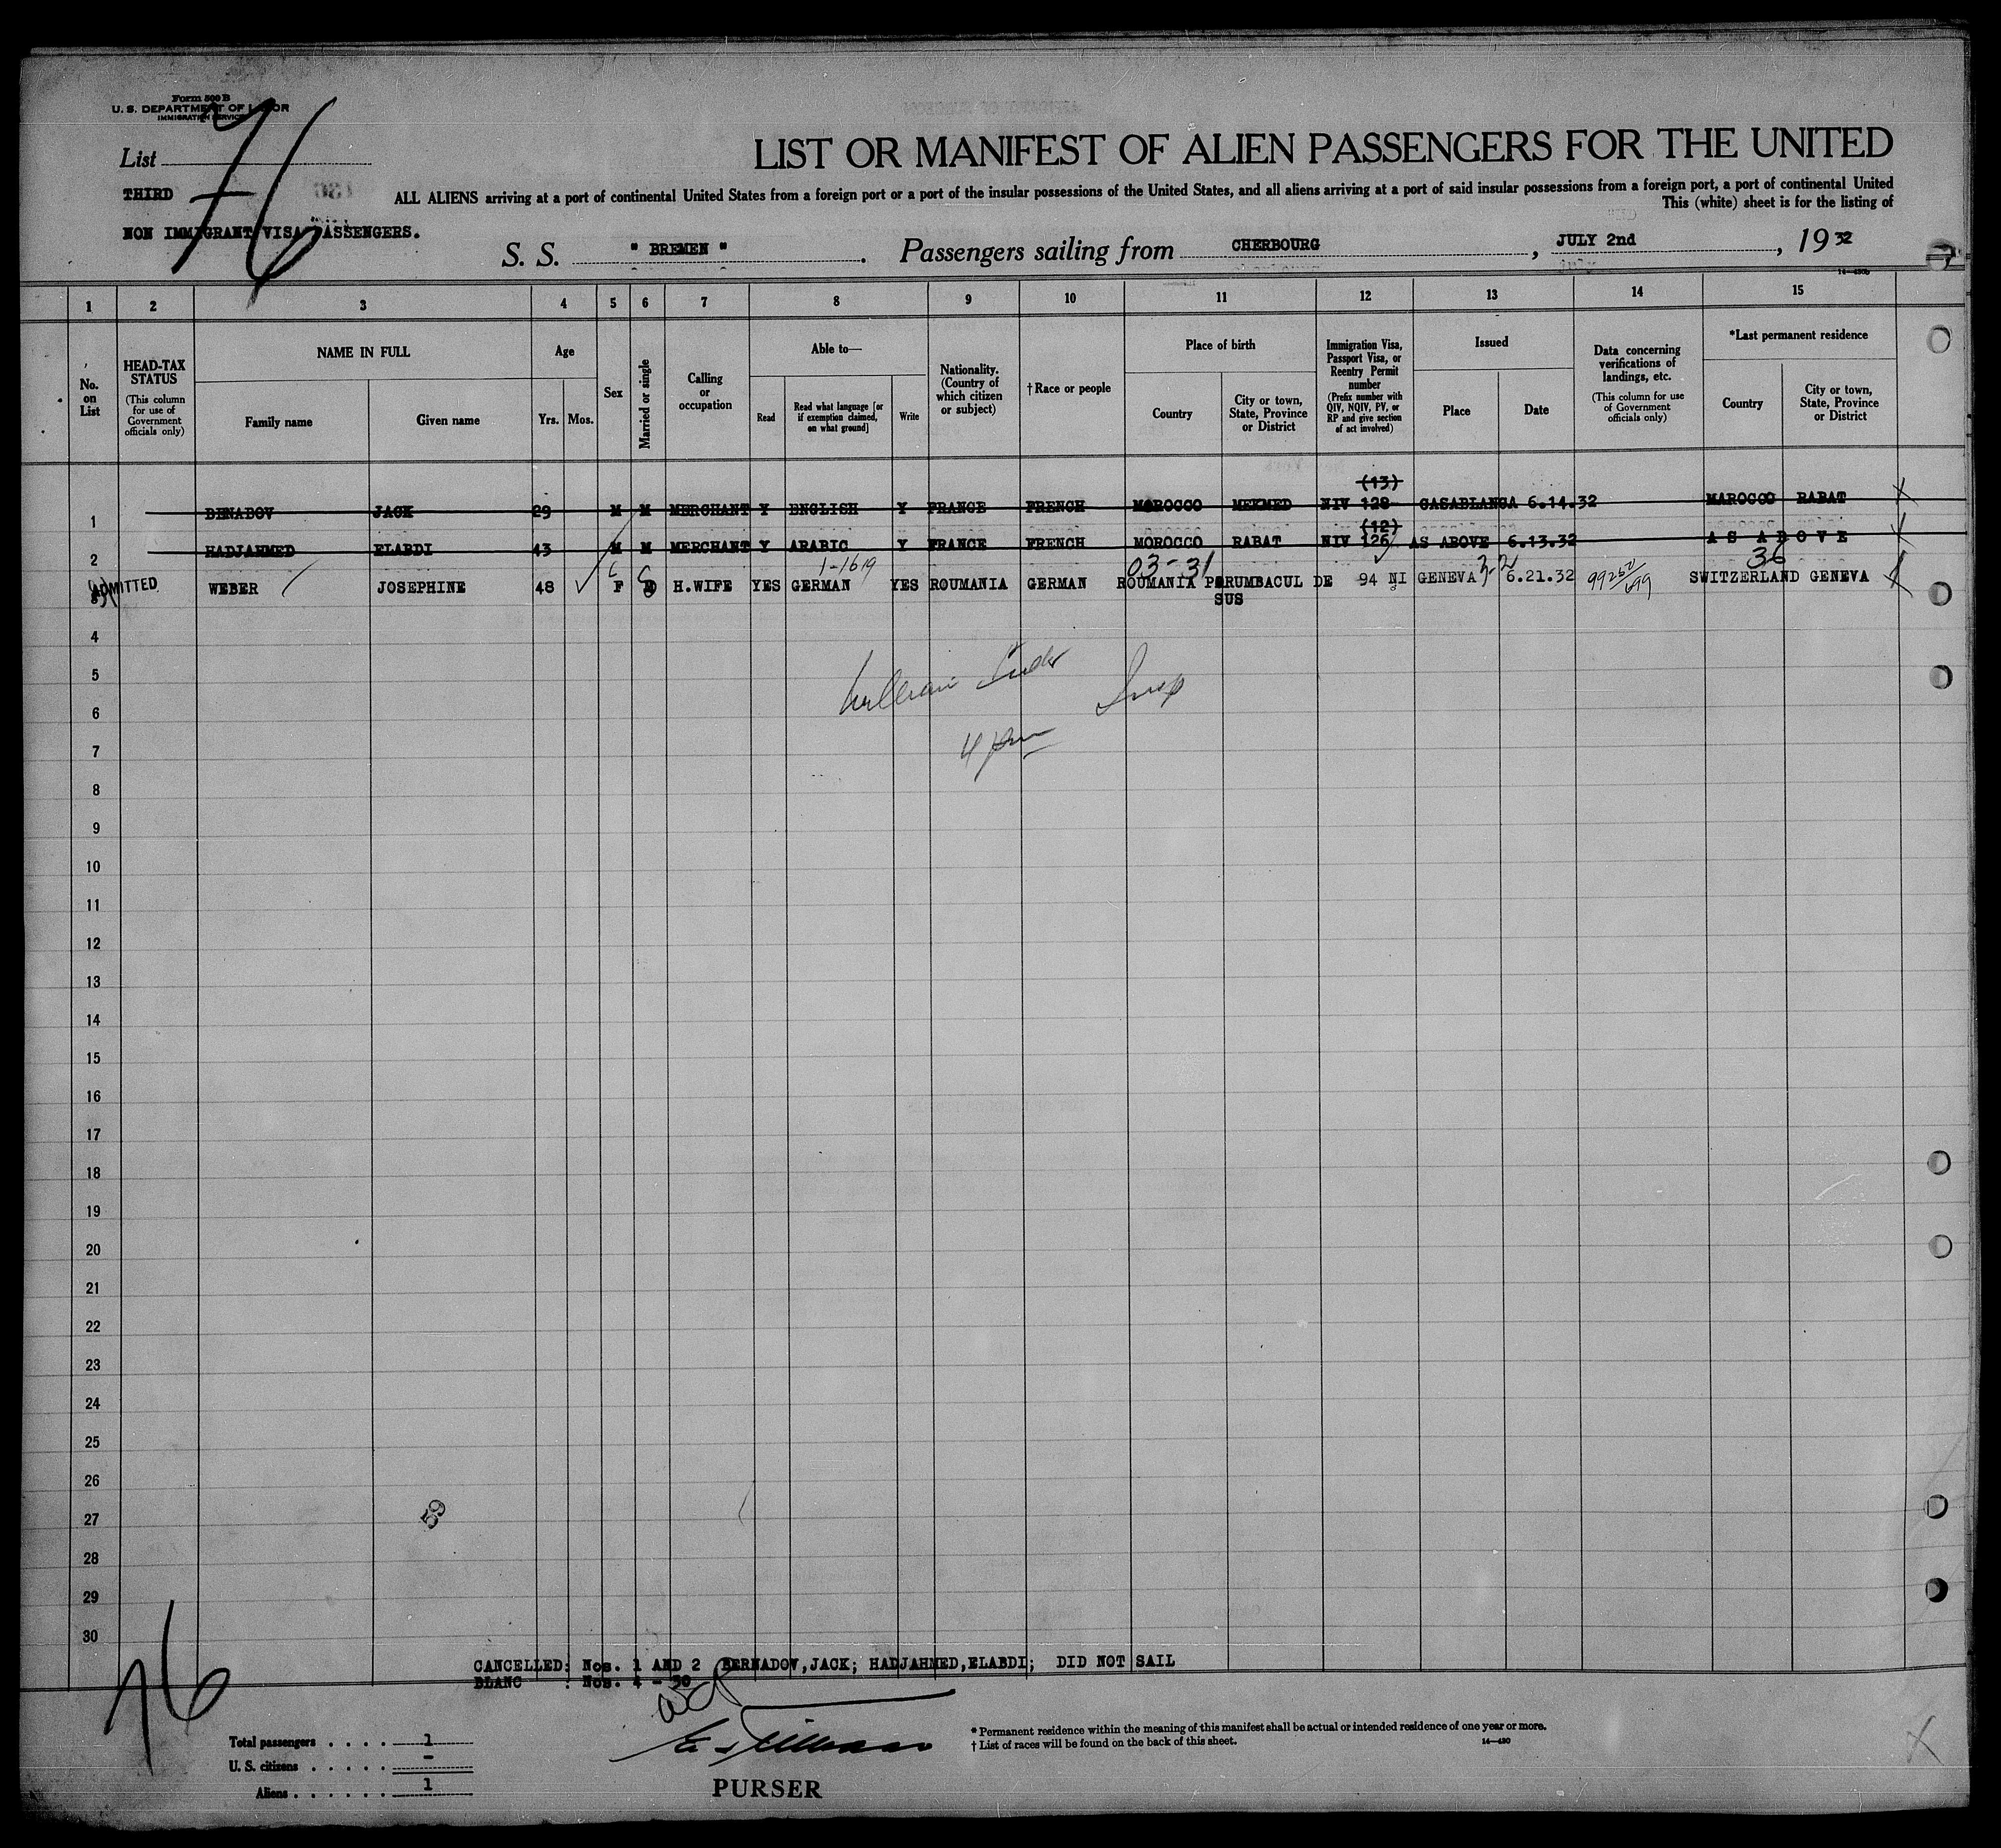 Form 500 B
U. S. DEPARTMENT OF LABOR
IMMIGRATION SERVICE
76
List
LIST OR MANIFEST OF ALIEN PASSENGERS FOR THE UNITED
THIRD
ALL ALIENS arriving at a port of continental United States from a foreign port or a port of the insular possessions of the United States, and all aliens arriving at a port of said insular possessions from a foreign port, a port of continental United
This (white) sheet is for the listing of
NON IMMIGRANT VISA PASSENGERS.
S. S. " BREMEN " . Passengers sailing from CHERBOURG , JULY 2nd , 19 32
1 2 3 4 5 6 7 8 9 10 11 12 13 14 15
No. on List
HEAD-TAX STATUS (This column for use of Government officials only)
NAME IN FULL
Family name
Given name
Age
Yrs. Mos.
Sex
Married or single
Calling or occupation
Able to—
Read
Read what language [or if exemption claimed, on what ground]
Write
Nationality. (Country of which citizen or subject)
† Race or people
Place of birth
Country
City or town, State, Province or District
Immigration Visa, Passport Visa, or Reentry Permit number (Prefix number with QIV, NQIV, PV, or RP and give section of act involved)
Issued
Place
Date
Data concerning verifications of landings, etc. (This column for use of Government officials only)
*Last permanent residence
Country
City or town, State, Province or District
(13)
1 BENABOV JACK 29 M M MERCHANT Y ENGLISH Y FRANCE FRENCH MOROCCO MEKMED NIV 128 CASABLANCA 6.14.32 MAROCCO RABAT
(12)
2 HADJAHMED ELABDI 43 M M MERCHANT Y ARABIC Y FRANCE FRENCH MOROCCO RABAT NIV 126 AS ABOVE 6.13.32 A S A B O V E
03-31 36
ADMITTED
3 WEBER JOSEPHINE 48 F H.WIFE YES GERMAN YES ROUMANIA GERMAN ROUMANIA PORUMBACUL DE 94 NI GENEVA 6.21.32 SWITZERLAND GENEVA
SUS
4
5
6
7
4 pm
8
9
10
11
12
13
14
15
16
17
18
19
20
21
22
23
24
25
26
27
59
28
29
30
CANCELLED: Nos. 1 AND 2 BERNADOV,JACK; HADJAHMED,ELABDI; DID NOT SAIL
BLANC : Nos. 4 - 30
76
Total passengers . . . . 1
U. S. citizens . . . . . -
Aliens . . . . . . 1
PURSER
* Permanent residence within the meaning of this manifest shall be actual or intended residence of one year or more.
† List of races will be found on the back of this sheet.
14—430